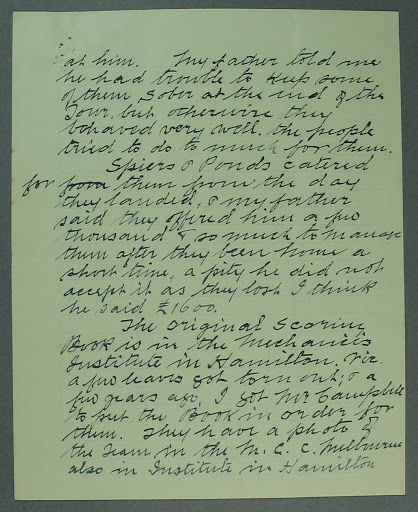 at him. My father told me
he had trouble to keep some
of them sober at the end of the
Tour, but otherwise they
behaved very well, the people
tried to do to much for them.
Spiers & Ponds catered
for from them from the day
they landed, & my father
said they offered him a few
thousand & so much to manage
them after they been home a
short time, a pity he did not
accept it as they lost I think
he said £1600.
The original Scoring
Book is in the Mechanics
Institute in Hamilton, Vic.
a few leaves got torn out, & a
few years ago, I got Mr Campbell
to put the Book in order for
them. They have a photo of
the Team in the M. C. C. Melbourne
also in Institute in Hamilton